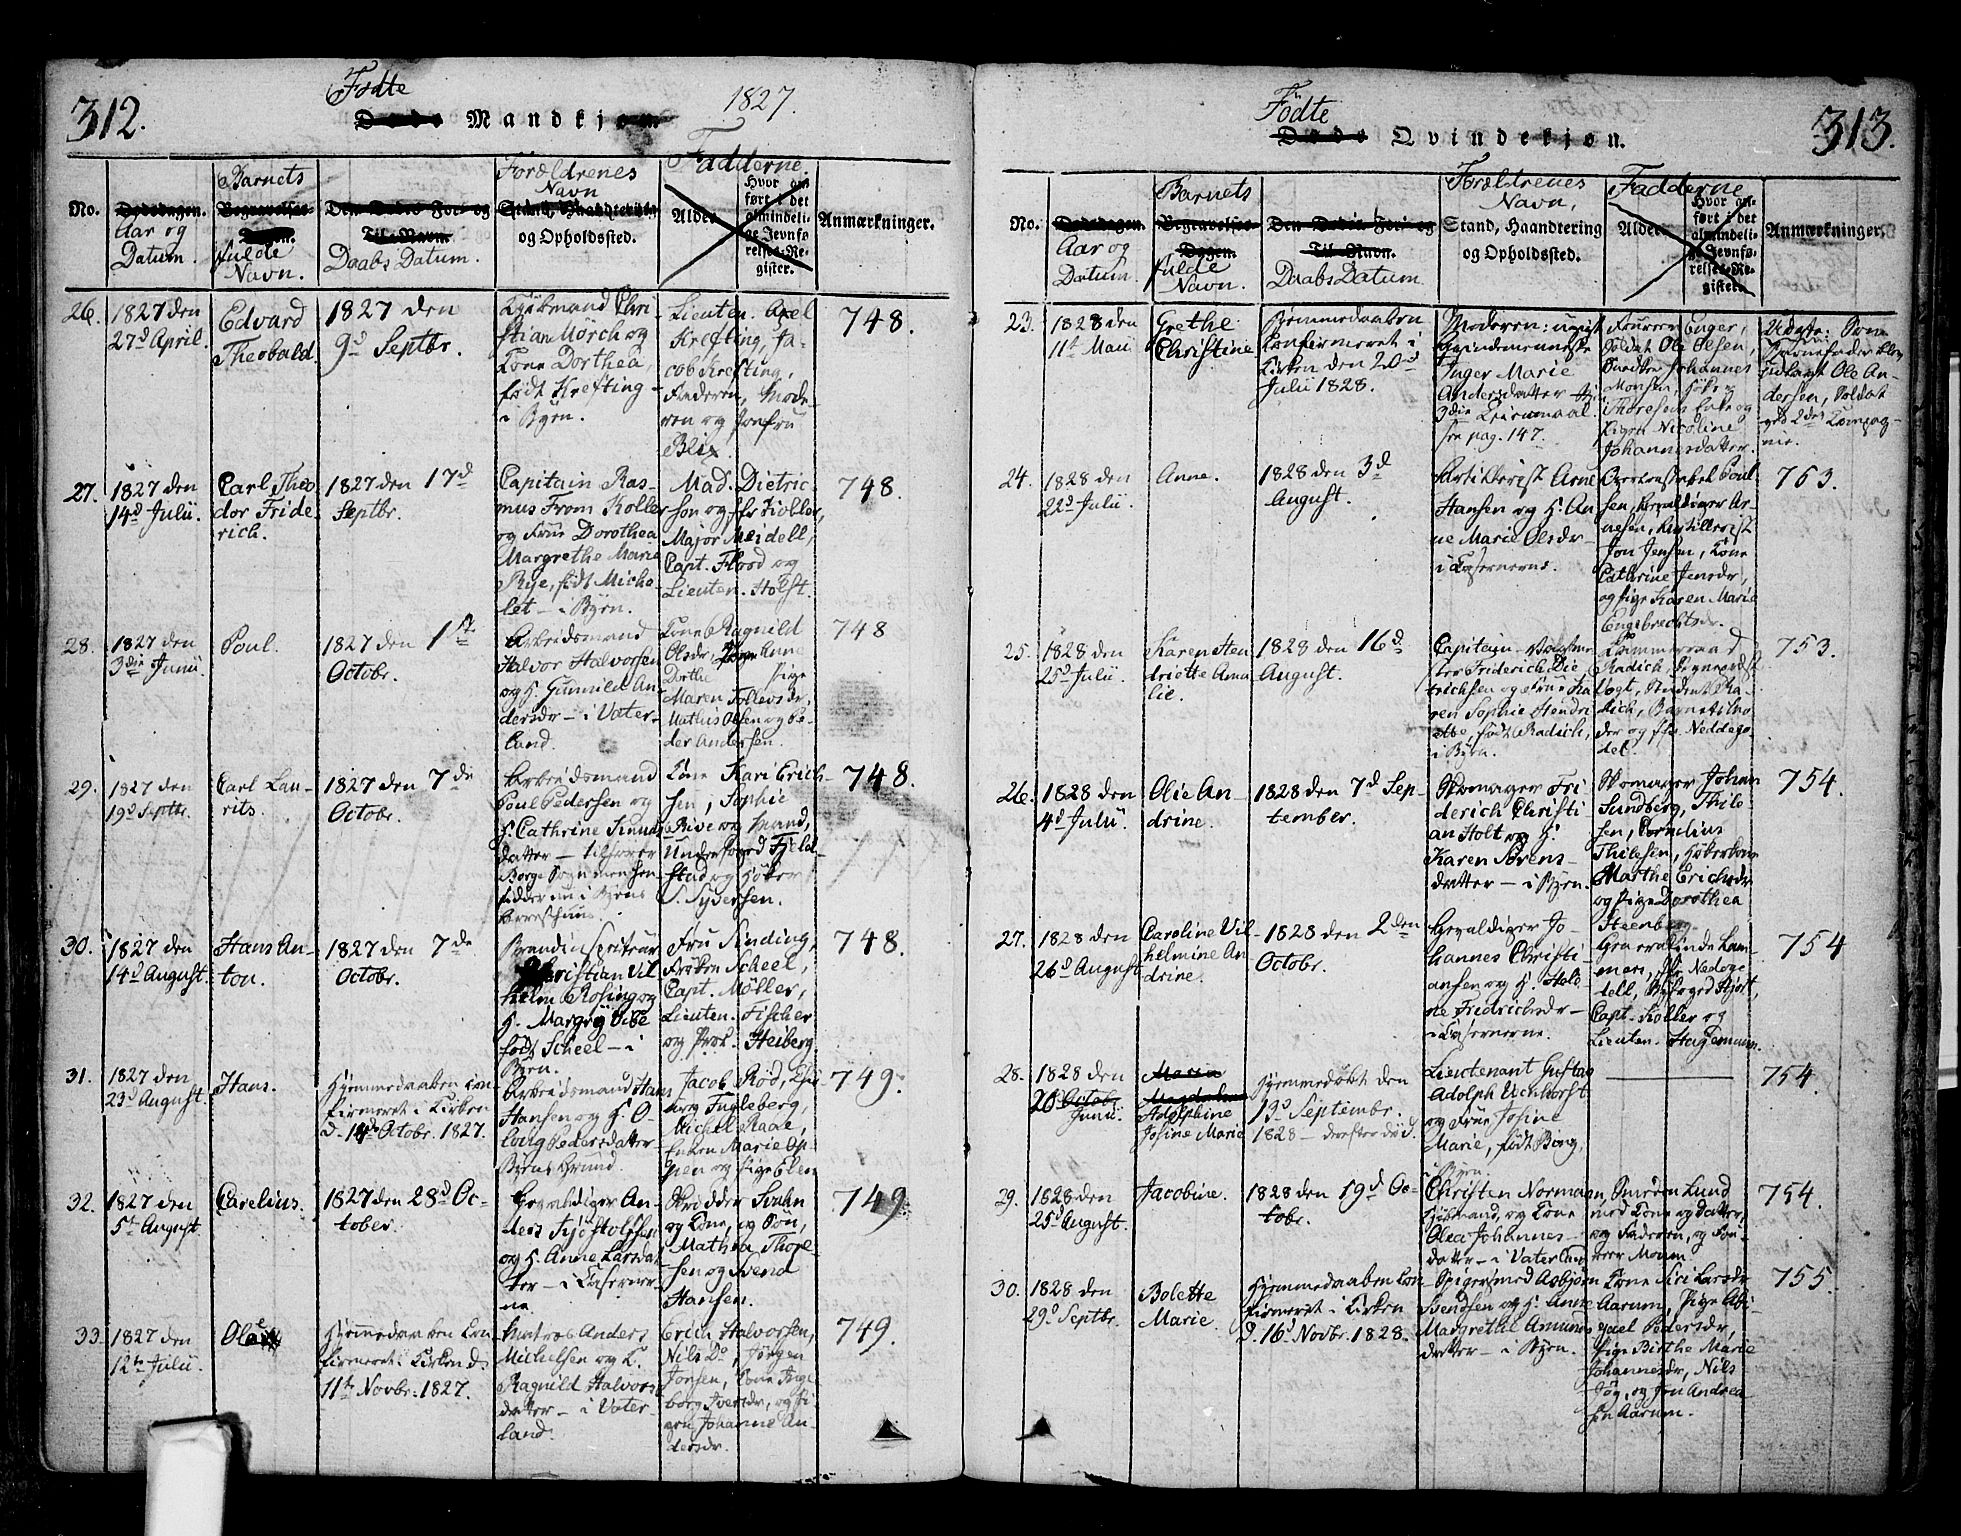 312.
Fødte
1827.
Døde Mandkjøn
Fadderne.
No.
Dødsdagen.
Aar og
Datum.
Barnets
Begravelses-
Dagen.
fulde
Navn.
Den Dødes For- og
Til-Navn.
Daabs Datum.
Forældrenes
Navn
Stand, Haandtering
og Opholdssted.
Alder
Hvor an-
ført i det
almindeli-
ge Jevnfø-
relses-Re-
gister.
Anmærkninger.
26.
1827 den
27d April.
Edvard
Theobald
1827 den
9d Septbr.
Kjøbmand Chri-
stian Mørch og
Kone Dorthea,
født Krefting -
i Byen.
Lieuten. Axel
Krefting, Ja-
cob Krefting,
Faderen, Mode-
ren og Jomfru
Blix.
748.
27.
1827 den
14d Julii.
Carl Theo
dor Fride
rich.
1827 den 17d
Septbr.
Capitain Ras-
mus From Koller
og Frue Dorothea
Margrethe Marie
Rye, født Micha-
let - i Byen.
Mad. Dietric-
son og Hr Koller,
Major Meidell,
Capt. Flood og
Lieuten. Holst.
748.
28.
1827 den
3die Junii
Poul.
1827 den 1st
Octobr.
Arbeidsmand
Halvor Halvorsen
og H. Gunnild An-
dersdr - i Vater-
land.
Kone Ragnild
Olsdr, Anne
Dorthe Pige
Maren Tollevsdr,
Mathis Olsen og Pe-
der Andersen.
748
29.
1827 den
19d Septbr.
Carl Lau-
rits.
1827 den 7de
Octobr.
Arbeidsmand
Poul Pedersen og
H. Cathrine Knuds
datter -
Borge Sogn men
i Byens
Kone Kari Erich-
sen, Sophie
Rive og Mand,
Underfoged Fjeld-
stad og Høker
S. Syversen.
748.
30.
1827 den
14d August.
Hans An-
ton.
1827 den 7de
Octobr.
Christian Vil
helm Rosing og
H. Margr. Vibe
født Scheel - i
Byen.
Fru Sinding,
Frøken Scheel,
Capt. Møller,
Lieuten. Fischer
og Prok. Heiberg
748.
31.
1827 den
23d August.
Hans.
Hjemmedaaben con-
firmeret i Kirken
d. 14de Octobr. 1827.
Arbeidsmand Hans
Hansen og H. O-
loug Pedersdatter
Byens Grund.
Jacob Rød,
Fugleberg,
Michel Raae,
Enken Marie Op-
pen og Pige Elen
749.
32.
1827 den
5te August
Carelius.
1827 den 28d Oc-
tober.
Gevaldiger An-
ders Kjøstolfsen
og H. Anne Larsdat-
ter - i Caserner-
ne.
Skrædder Svahn
og Kone, og Søn,
Mathea Thor-
sen og Svend
Hansen.
749
33.
1827 den
12te Julii.
Ole
Hjemmedaaben con-
firmeret i Kirken d.
11te Novbr. 1827.
Matros Anders
Michelsen og K.
Ragnild Halvors-
datter - i Vater-
land.
Erich Halvorsen,
Nils Do, Jørgen
Jonsen, Kone Inge-
borg Iversdr, og Pi-
gen Johanne An-
dersdr.
749.
313.
Fødte
Døde Qvindekjøn.
No.
Dødsdagen.
Aar og
Datum.
Barnets
Begravelses-
Dagen.
fulde
Navn.
Den Dødes For- og
Til-Navn.
Daabs Datum.
Forældrenes
Navn,
Stand, Haandtering
og Opholdssted.
Fadderne
Alder
Hvor an-
ført i det
almindeli-
ge Jevnfø-
relses-Re-
gister.
Anmærkninger.
23.
1828 den
11te Maii
Grethe
Christine
Hjemmedaaben
confirmeret i
Kirken den 20d
Julii 1828.
Moderen: ugift
Qvindemenneske
Inger Marie
Andersdatter
3die Leiermaal.
see pag. 147.
Enger,
Soldat Ole Olsen,
Snedker Johannes
Monsen, Høker
Thoresens Enke og
Pigen Nicoline
Johannesdatter.
Uægte: Som
Barnefader blev
udlagt Ole An-
dersen, Soldat
ved 2det Compag-
nie.
24.
1828 den
22d Julii.
Anne.
1828 den 3d
August.
Artillerist Arne
Hansen og H. An
ne Marie Olsdr -
i Casernerne.
Poul-
sen, Gevaldiger Ar-
nesen, Artillerist
Jon Jensen, Kone
Cathrine Jensdr,
og Pige Karen Marie
Engebrechtsdr.
753.
25.
1828 den
25d Julii.
Karen Hen
driette Ama
lie.
1828 den 16d
August.
Capitain
Friderich Die
trichsen og Frue Ka
ren Sophie Hendri
ette, født Radich,
i Byen.
Kammerraad
Radich,
Vogt, Student Ra
dich, Barnets Mo-
der og Hr. Neddego-
del.
753.
26.
1828 den
4d Julii.
Olie An-
drine.
1828 den 7d Sep-
tember.
Skomager Fri
derich Christi
an Holt og H.
Karen Sørens-
datter - i Byen.
Skomager Johan
Sundberg, Thile-
sen, Cornelius
Thilesen, Høkerkone
Marthe Erichsdr
og Pige Dorothea
Steenberg.
754.
27.
1828 den
26d August
Caroline Vil
helmine An
drine.
1828 den 2den
Octobr.
Gevaldiger Jo-
hannes Christi-
ansen og H. Hele-
ne Fredrichsdr -
i Casernerne.
Generalinde Lam-
mers, Nedoge
dell, Byfoged Hjort,
Capt. Koller og
Lieuten. Hagemann.
754
28.
1828 den
20 Octobr
Junii
Maria
Magdalena
Adolphine
Josine Marie
Hjemmedøbt den
13d Septembr.
1828 - derefter død.
Lieutenant Gustav
Adolph Eichhorst
og Frue Josine
Marie, født Borg,
i Byen.
754.
29.
1828 den
25d August.
Jacobine.
1828 den 19d Oc-
tobr.
Christen Normann,
Kjøbmand, og Kone
Olea Johannes-
datter - i Vaterland
Simøren Lund
med Kone og Datter,
og Faderen, og Jom-
fru Moum.
754.
30.
1828 den
29d Septbr.
Bolette
Marie.
Hjemmedaaben con-
firmeret i Kirken
d. 16d Novbr. 1828.
Spigersmed Asbjørn
Svendsen og H. Anne
Margrethe Amunds-
datter - i Byen.
Kone Siri Larsdr
Aarum, Pige Abi-
gael Pedersdr,
Pige Birthe Marie
Johannesdr, Nils
Jøg, og Jon Andrea-
sen Aarum.
755.